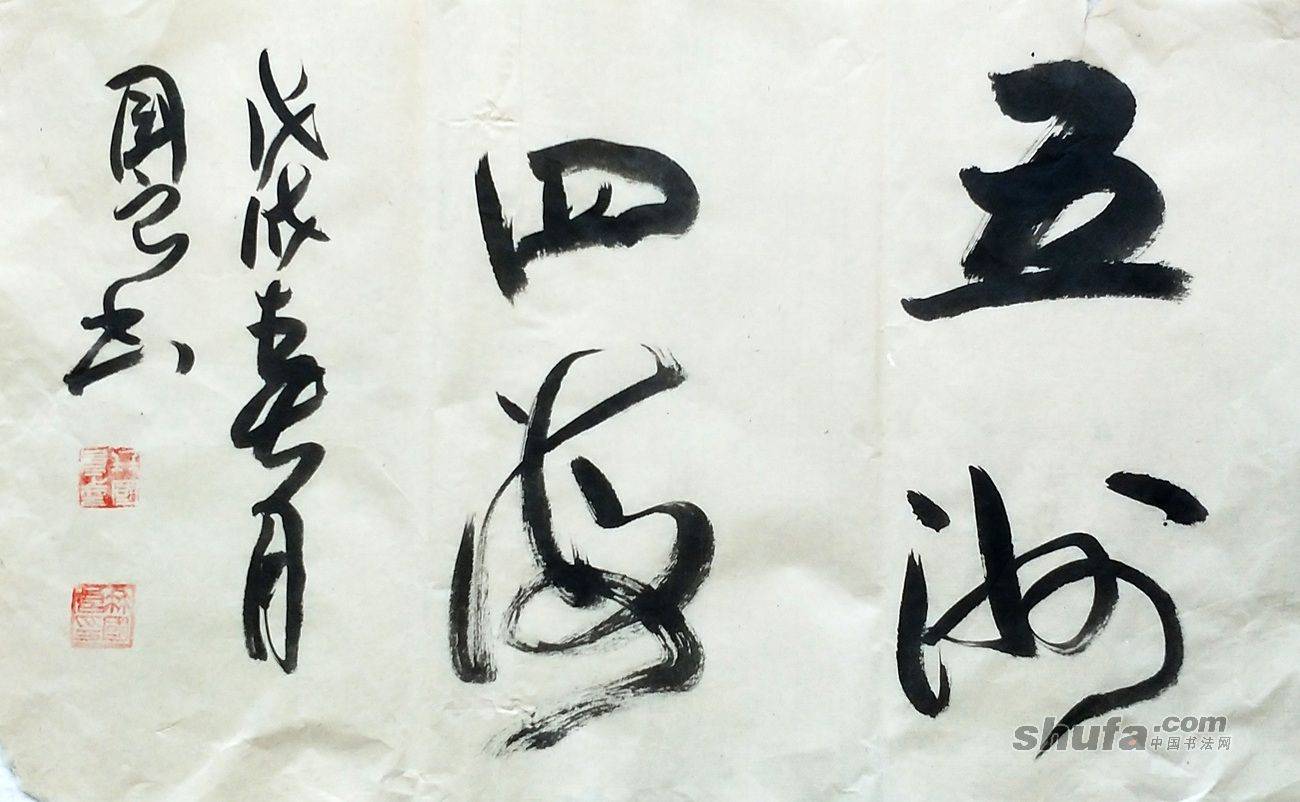 五洲
四海
戊戌春月
国良书
shufa.com
中国书法网